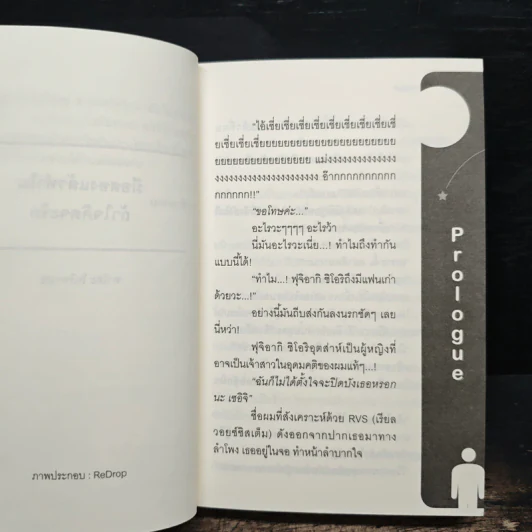 ภาพประกอบ : ReDrop
"ไอ้เชี่ยเชี่ยเชี่ยเชี่ยเชี่ยเชี่ยเชี่ยเชี่ยเชี่ยเชี่
ยเชี่ยเชี่ยเชี่ยยยยยยยยยยยยยยยยยยยยยยยย
ยยยยยยยยยยยยยยยยย แม่งงงงงงงงงงงงงง
งงงงงงงงงงงงงงงงงงงงงง อ๊ากกกกกกกกกกก
กกกกกก!!"
"ขอโทษค่ะ..."
อะไรวะๆๆๆๆ อะไรว้า
นี่มันอะไรวะเนี่ย...! ทำไมถึงทำกัน
แบบนี้ได้!
"ทำไม...! ฟุจิอากิ ชิโอริถึงมีแฟนเก่า
ด้วยวะ...!"
อย่างนี้มันถีบส่งกันลงนรกชัดๆ เลย
นี่หว่า!
ฟุจิอากิ ชิโอริอุตส่าห์เป็นผู้หญิงที่
อาจเป็นเจ้าสาวในอุดมคติของผมแท้ๆ...!
"ฉันก็ไม่ได้ตั้งใจจะปิดบังเธอหรอก
นะ เซอิจิ"
ชื่อผมที่สังเคราะห์ด้วย RVS (เรียล
วอยซ์ซิสเต็ม) ดังออกจากปากเธอมาทาง
ลำโพง เธออยู่ในจอ ทำหน้าลำบากใจ
Prologue